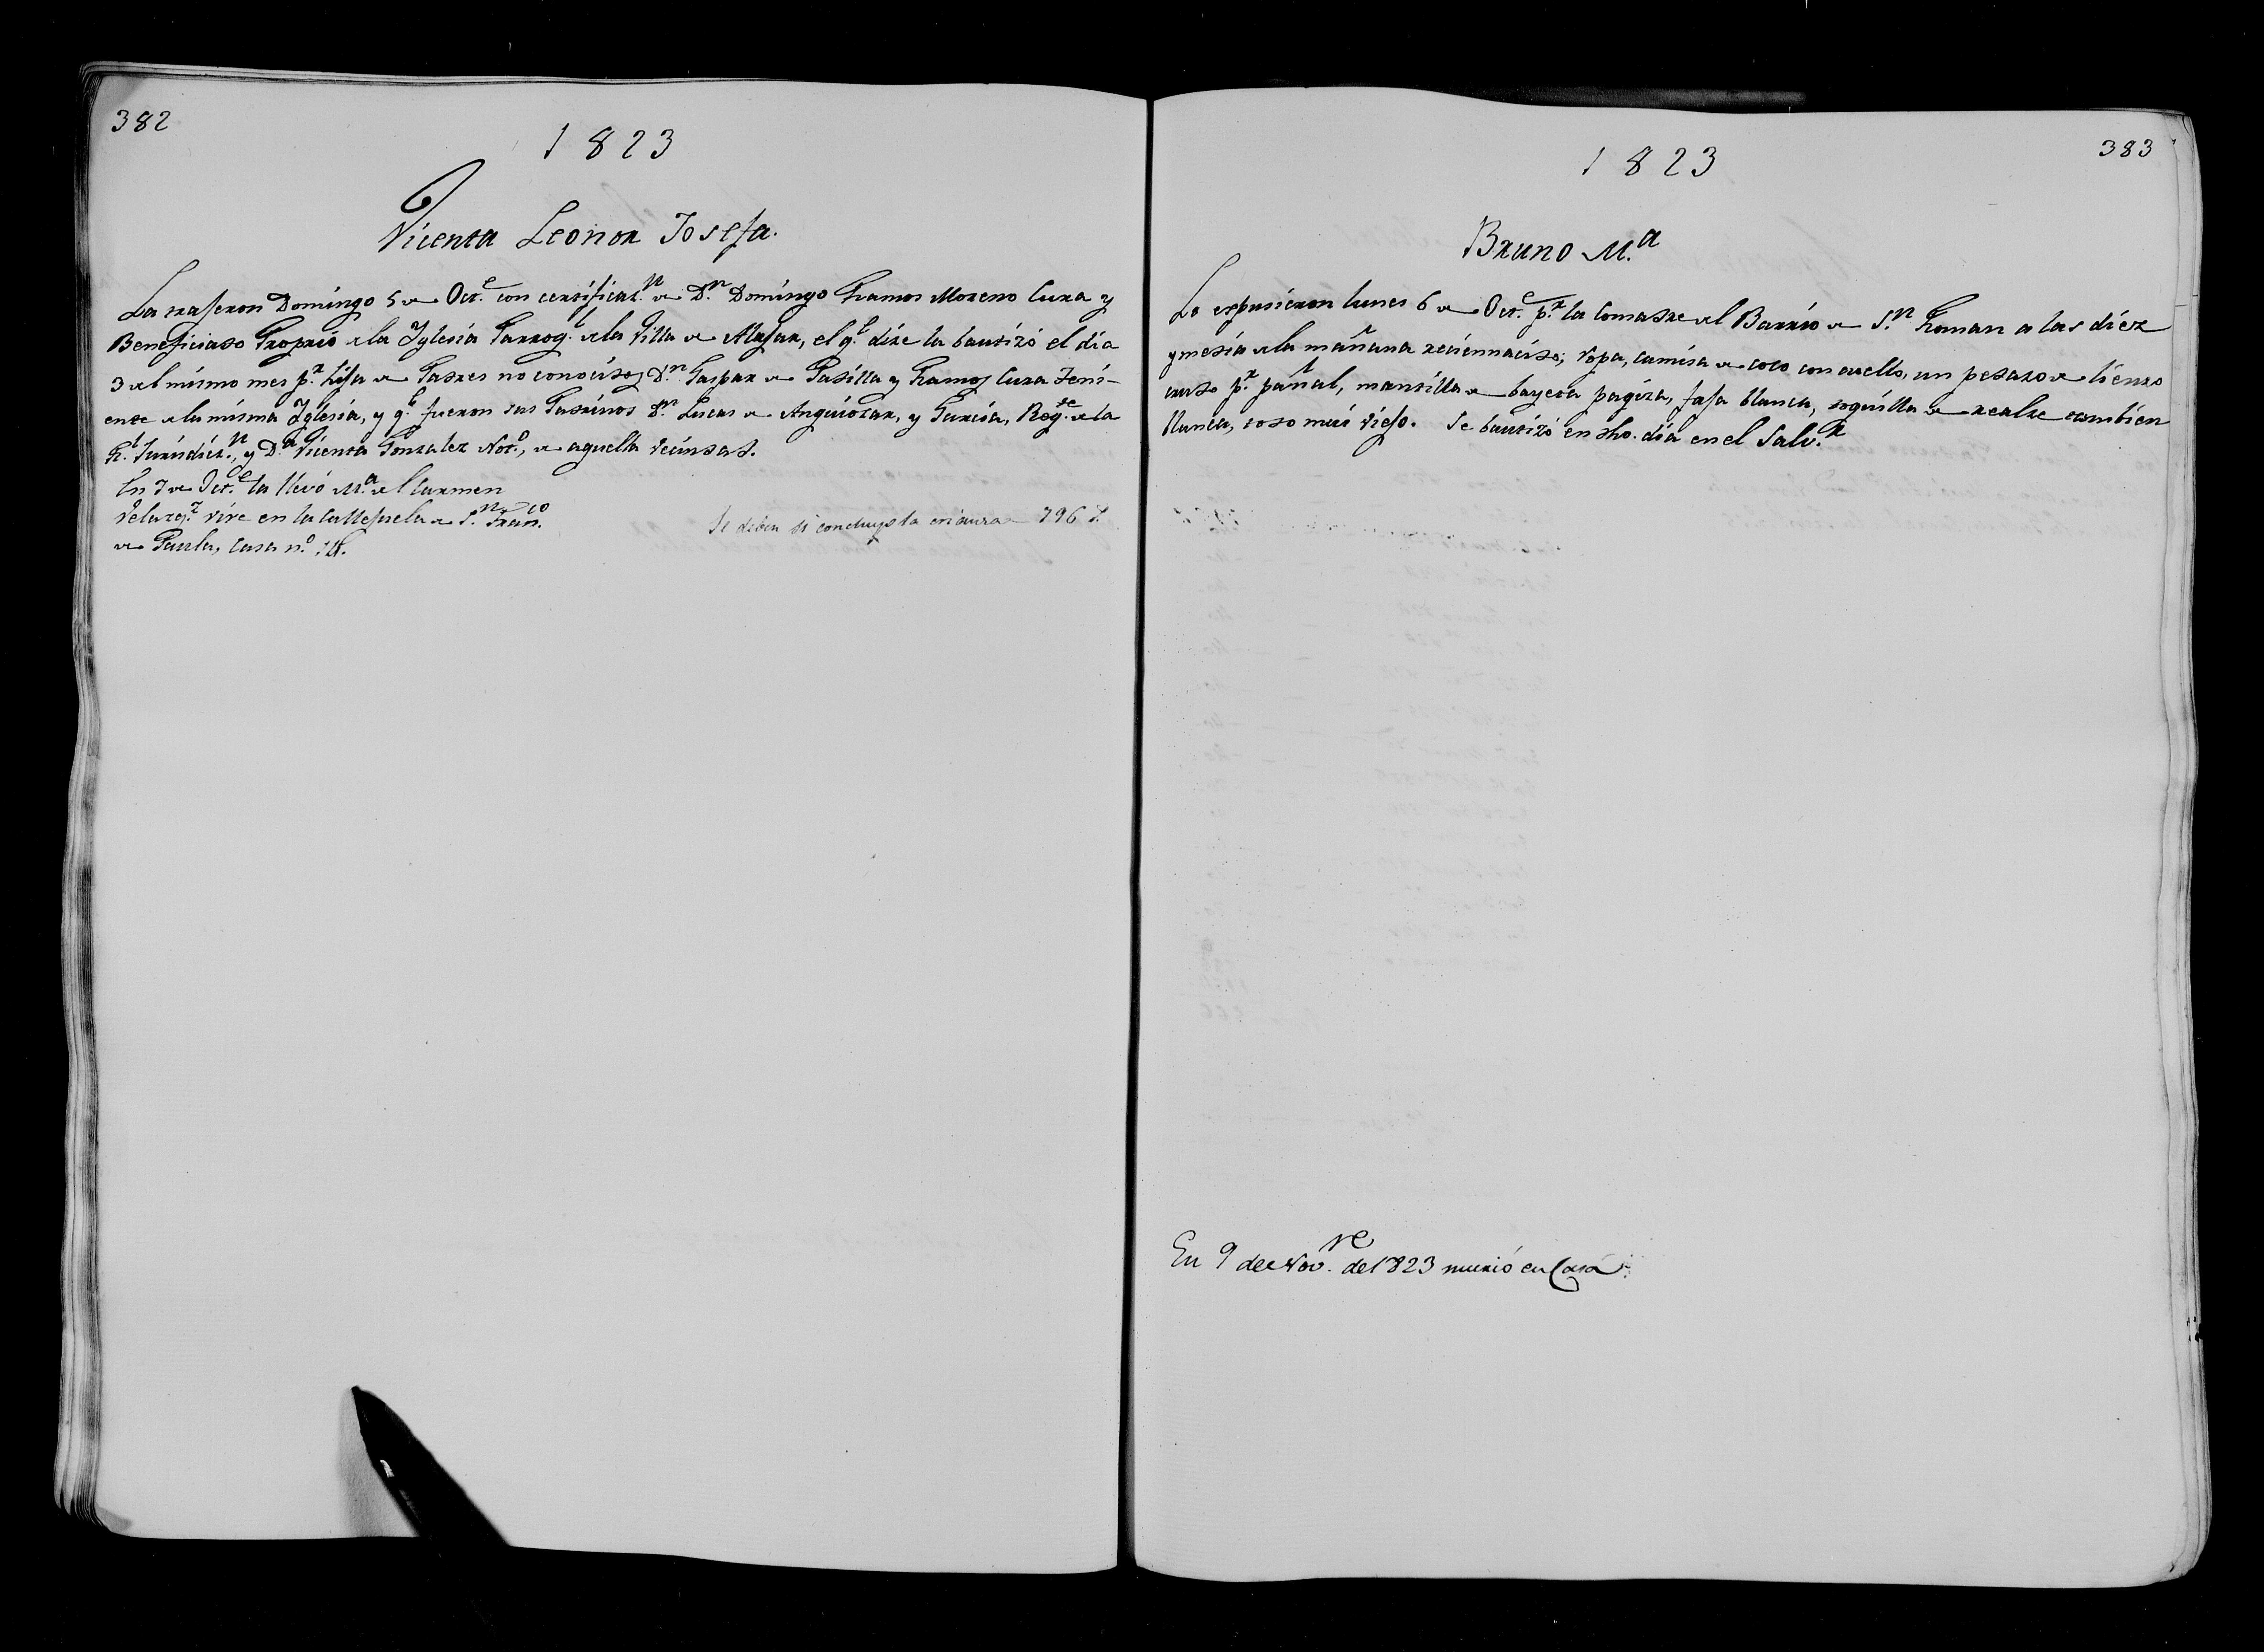 382
1823
Vicenta Leonor Josefa.
La trajeron Domingo 5 de Oct.e con certificac.n de D.n Domingo Ramos Moreno Cura y
Beneficiado Proprio de la Yglesia Parroq.l de la Villa de Alajar, el q.e dize la bautizó el dia
3 del mismo mes p.r hija de Padres no conocidos D.n Gaspar de Padilla y Ramos Cura Teni-
ente de la misma Yglesia, y q.e fueron sus Padrinos D.n Lucas de Anguiozar, y Garcia, Reg.te de la
R.l Jurisdicc.n, y D.a Vicenta Gonzalez Not.o, de aquella vecindad.
En 7 de Oct.e la llevó M.a del Carmen
Velazq.z vive en la Callejuela de S.n Fran.co
de Paula, casa n.o
Se deben si concluye la crianza 796
383
1823
Bruno M.a
Lo expusieron lunes 6 de Oct.e p.r la Comadre del Barrio de S.n Roman a las diez
y media de la mañana reciennacido; ropa, camisa de coco con cuello, un pedazo de lienzo
crudo p.r pañal, mantilla de bayeta pagiza, faja blanca, toquilla de realze tambien
blanca, todo mui viejo. Se bautizó en dho. dia en el Salv.r
En 9 de Nov.re de 1823 murió en Casa.